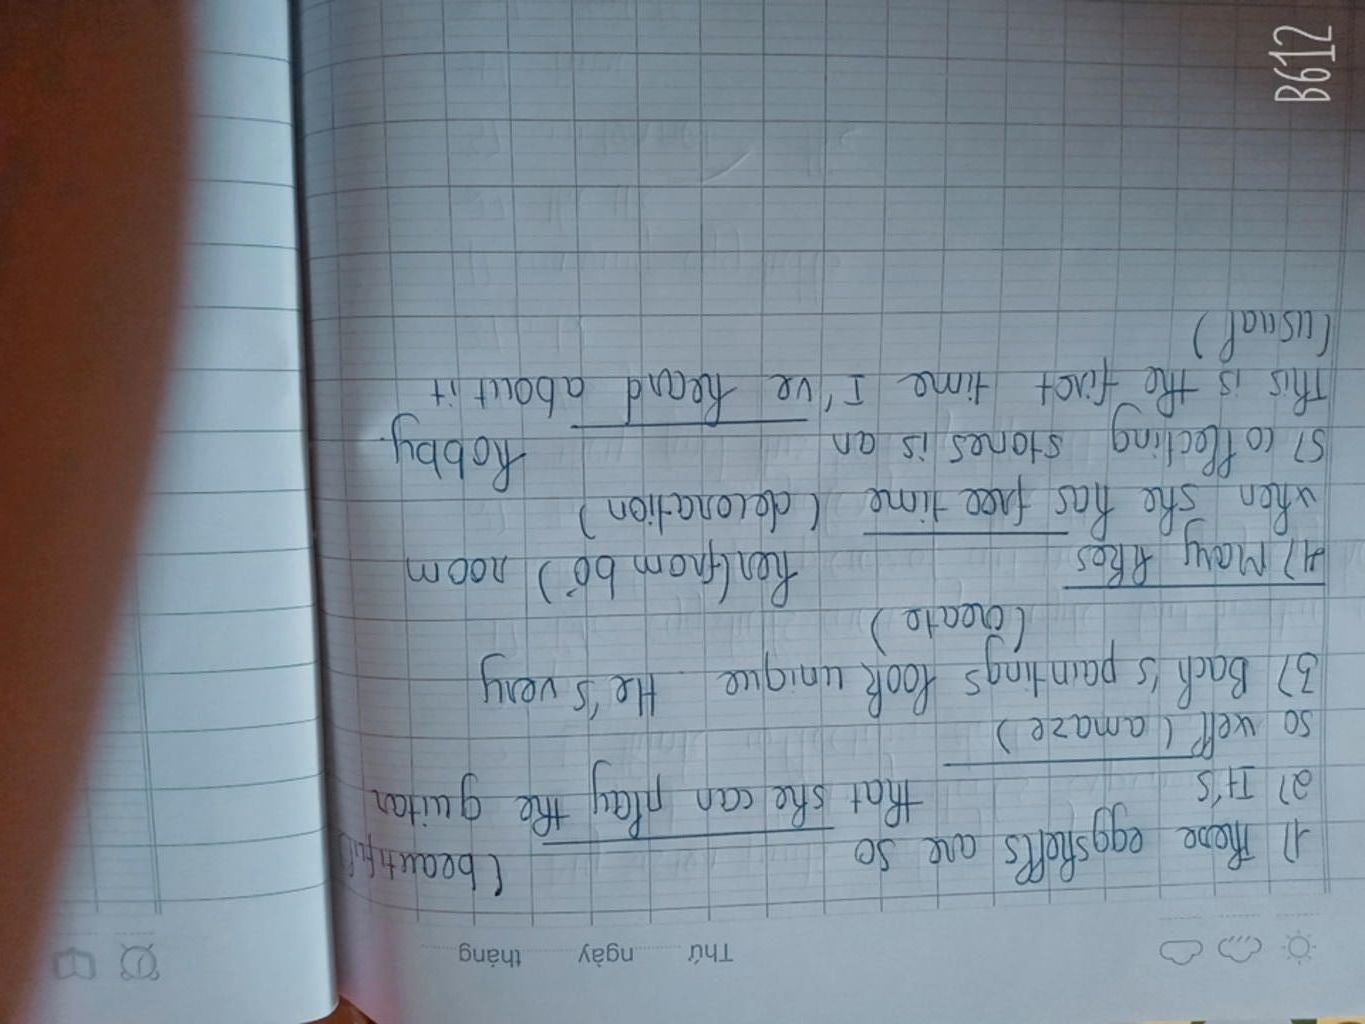 Thứ ........ ngày ........ tháng ........
1) These eggshells are so (beautiful)
2) It's that she can play the guitar
so well (amaze)
3) Bach's paintings look unique. He's very
(create)
4) Mary likes her (from bố) room
when she has free time (decoration)
5) Collecting stones is an hobby.
This is the first time I've heard about it
(usual)
B612